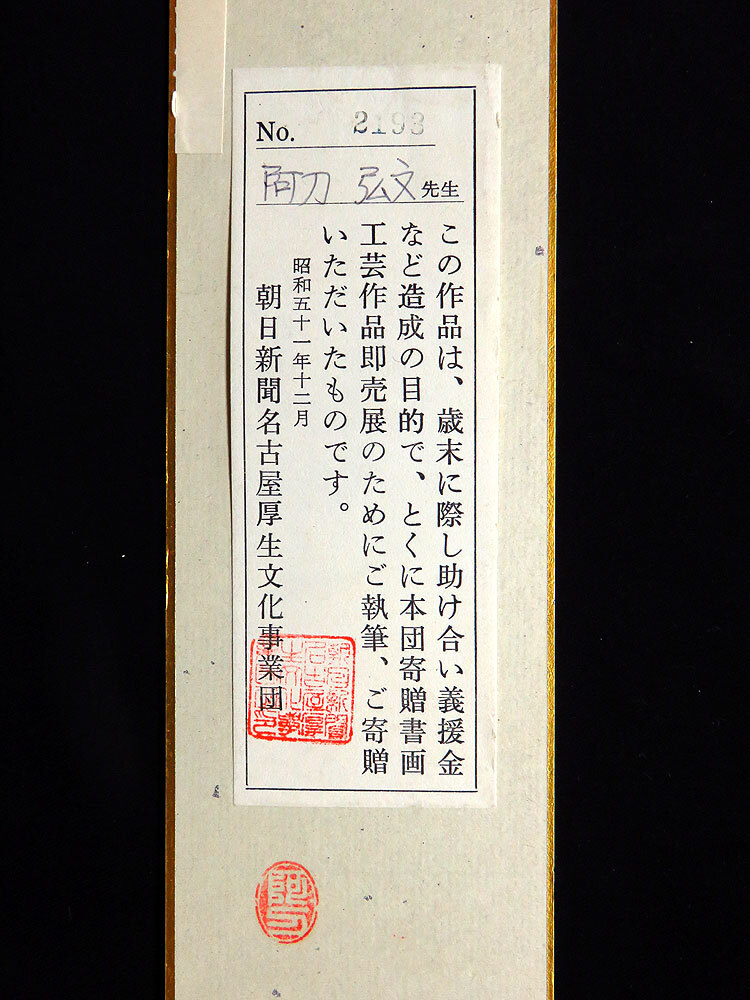 No. 2193
阿刀 弘文 先生
この作品は、歳末に際し助け合い義援金
など造成の目的で、とくに本団寄贈書画
工芸作品即売展のためにご執筆、ご寄贈
いただいたものです。
昭和五十一年十二月
朝日新聞名古屋厚生文化事業団